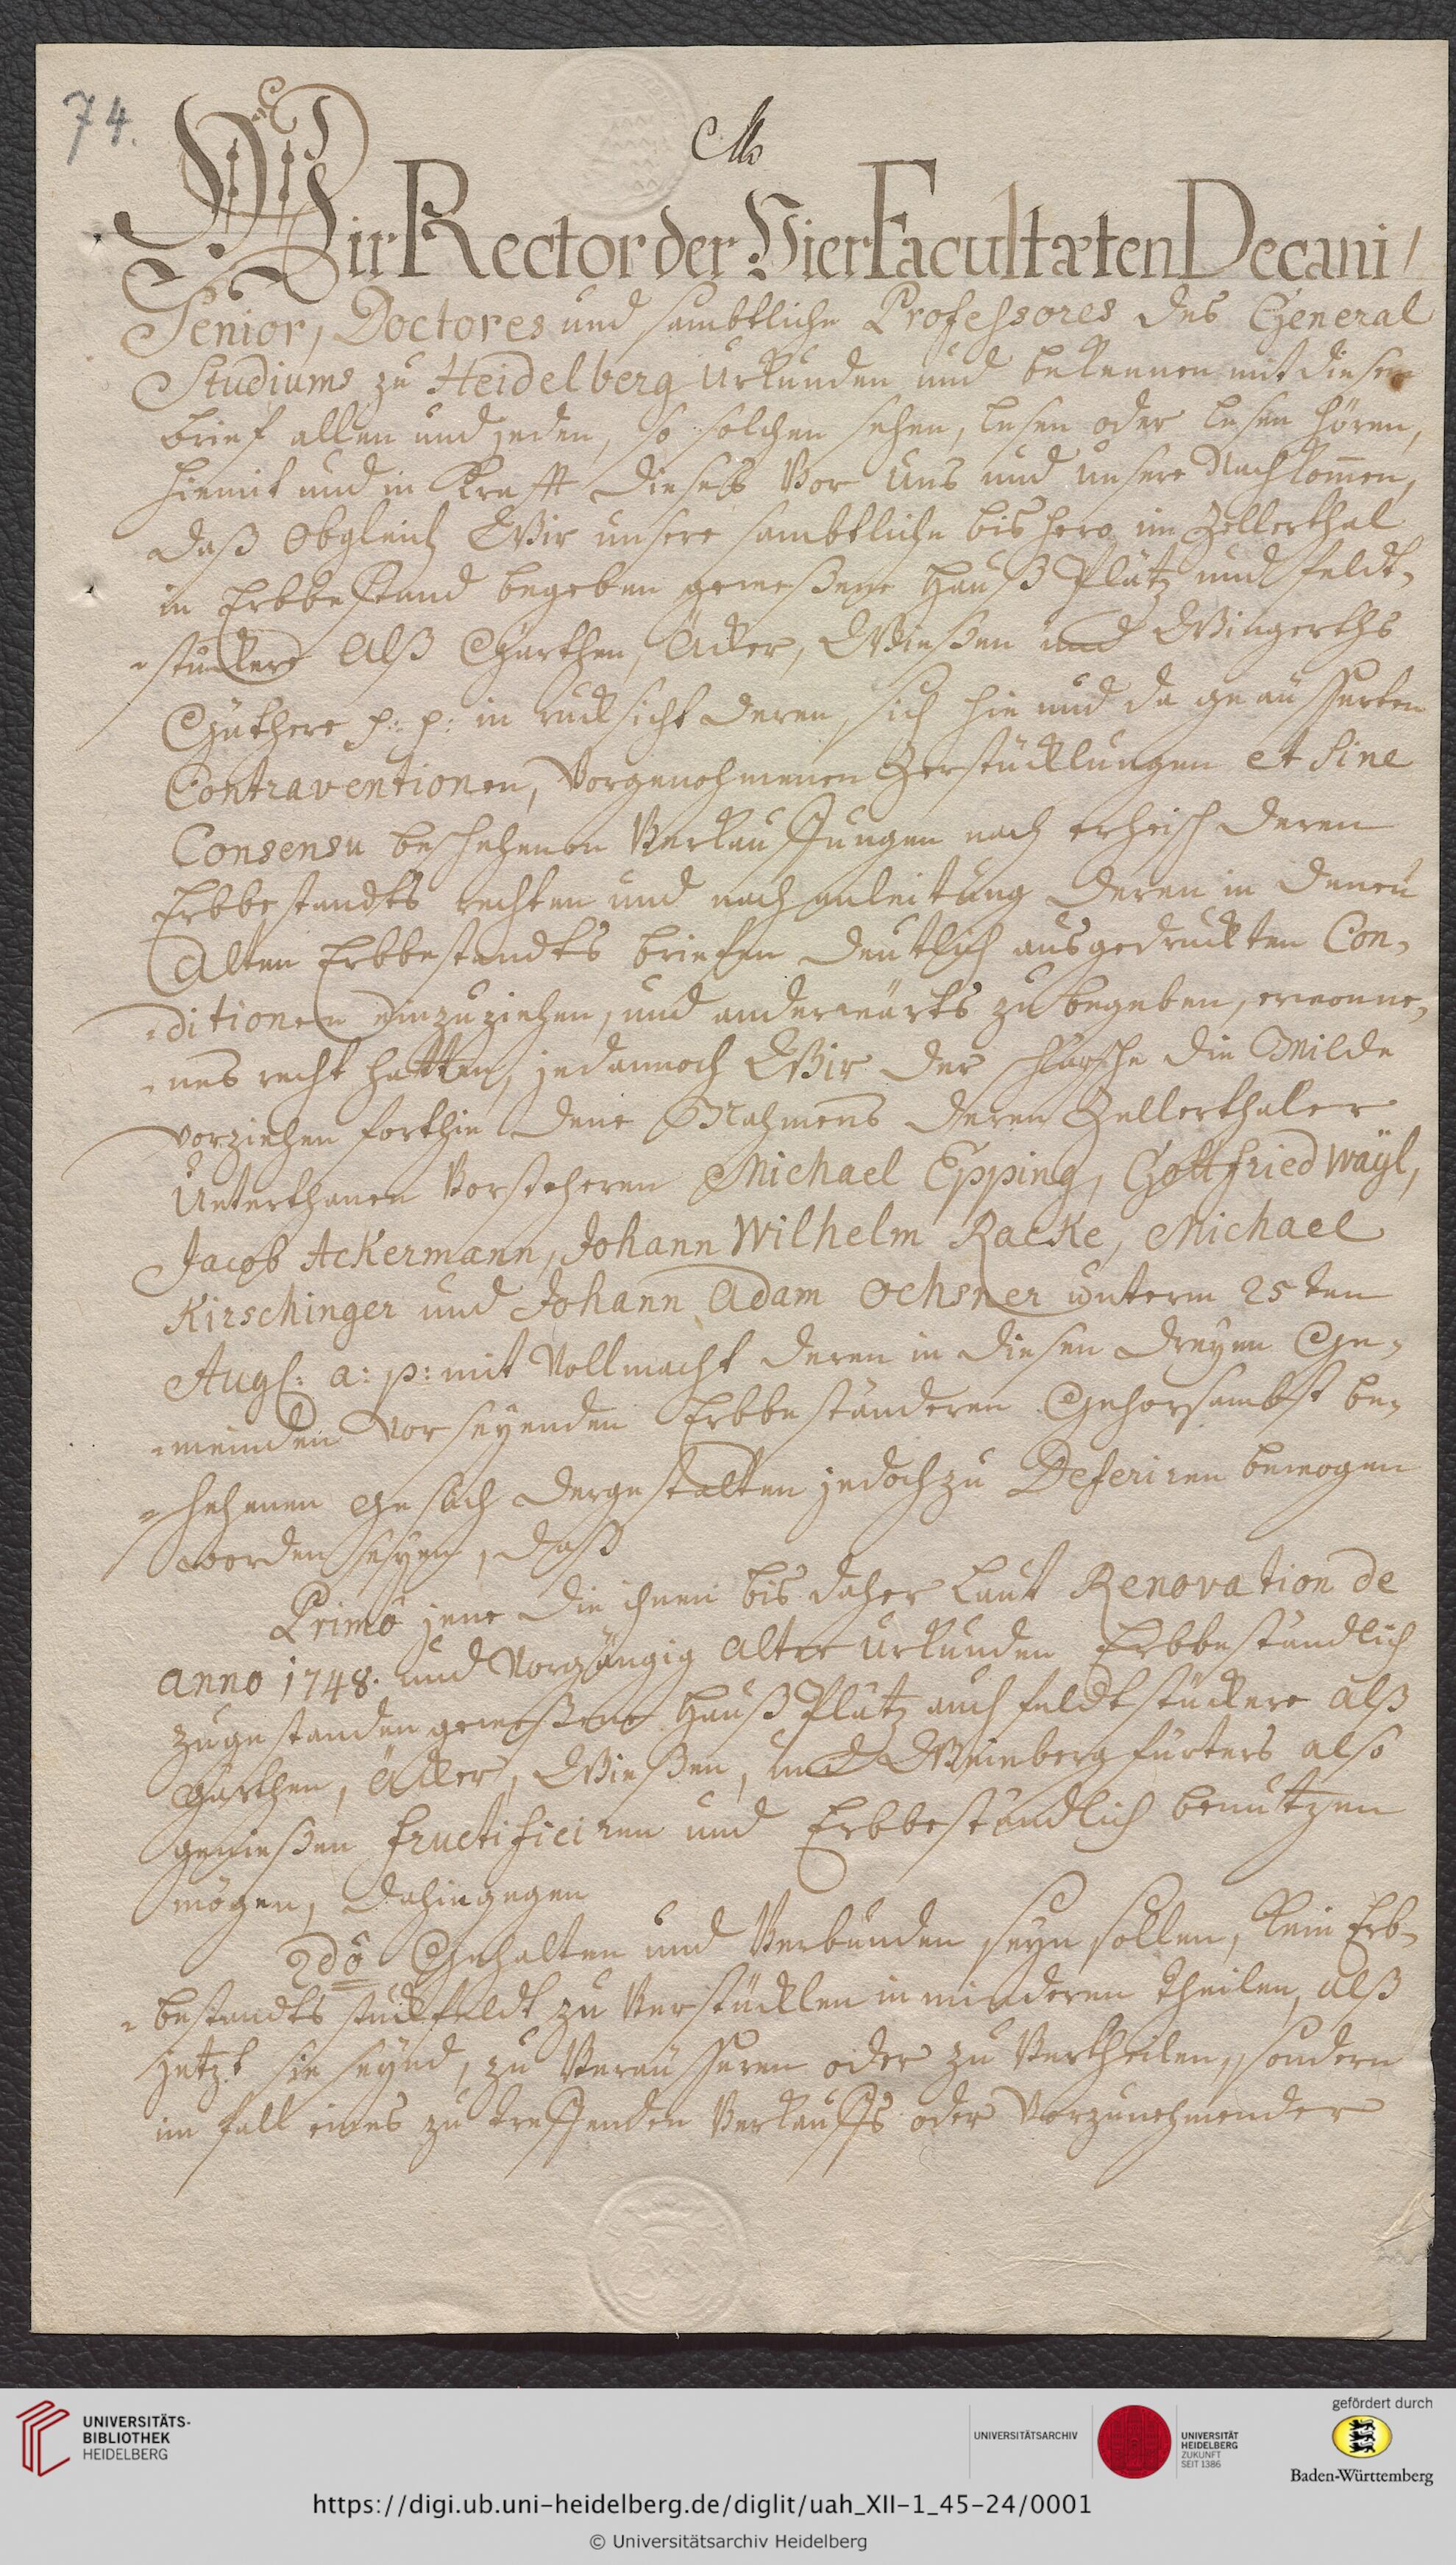 74.
Wir Rector der Vier Facultæten Decani,
Senior, Doctores und sambtliche Professores des General
Studiums zu Heidelberg Urkunden und bekennen mit diesem
brief allen und jeden, so solchen sehen, lesen oder lesen hören,
hiemit und in Krafft dieses Vor Uns und unsere Nachkom̄en,
daß Obgleich Wir unsere sambtliche bishero im Zellerthal
in Erbbestand begeben geweßene Hauß Plätz und feldt-
stückere Alß Gärthen, Äcker, Wießen und Wingerths
Güthere p: p: in rucksicht deren, sich hie und da geäusserten
Contraventionen, Vorgenohmenen Zerstücklungen et sine
Consensu beschehenen Verkauffungen nach erheisch deren
Erbbestandts rechten und nach anleitung deren in denen
Alten Erbbestandts briefen deutlich ausgedruckten Con-
ditionen einzuziehen, und anderwärts zu begeben, erwonne-
nes recht hatten, jedannoch Wir der schärfe die Milde
Vorziehen forthin dene Nahmens deren Zellerthaler
Unterthanen Vorsteheren Michael Epping, Gottfried Wäÿl,
Jacob Ackermann, Johann Wilhelm Racke, Michael
Kirschinger und Johann Adam Ochsner unterm 25ten
Aug: a: p: mit Vollmacht deren in diesen dreyen Ge-
meinden Vorseyenden Erbbeständeren Gehorsambst be-
schehenen Gesuch dergestalten jedoch zu Deferiren bewogen
worden seyen, daß
Primò jene die ihnen bis daher Laut Renovation de
anno 1748. und Vorgängig alter Urkunden Erbbeständlich
zugestanden geweßene Hauß Plätz auch feldtstückere alß
Gärthen, Äcker, Wießen, und Weinberg fürters also
genießen fructificiren und Erbbeständlich benutzen
mögen, dahingegen
2dò Gehalten und Verbunden seyn sollen, kein Erb-
bestandts stückfeldt zu Verstücklen in minderen theilen, alß
jetzt sie seynd, zu Veräusseren oder zu Vertheilen, sondern
im fall eines zu treffenden Verkauffs oder Vorzunehmender
UNIVERSITÄTS-
BIBLIOTHEK
HEIDELBERG
UNIVERSITÄTSARCHIV
UNIVERSITÄT
HEIDELBERG
ZUKUNFT
SEIT 1386
gefördert durch
Baden-Württemberg
https://digi.ub.uni-heidelberg.de/diglit/uah_XII-1_45-24/0001
© Universitätsarchiv Heidelberg